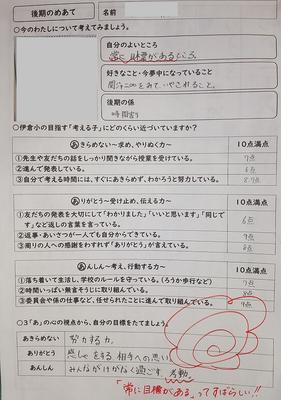 後期のめあて
名前
○今のわたしについて考えてみましょう。
自分のよいところ
常に目標があるところ
好きなこと・今夢中になっていること
後期の係
○伊倉小の目指す「考える子」にどのくらい近づいていますか?
あきらめない~求め、やりぬく力~
10点満点
①先生や友だちの話をしっかり聞きながら授業を受けている。
7点
②進んで発表している。
6点
③自分で考える時間には、すぐにあきらめず、わかろうと努力している。
ありがとう~受け止め、伝える力~
10点満点
①友だちの発表を大切にして「わかりました」「いいと思います」「同じで
す」など返しの言葉を言っている。
6点
②返事・あいさつが一人でも自分からできている。
9点
③周りの人への感謝をわすれず「ありがとう」が言えている。
8点
あんしん~考え、行動する力~
10点満点
①落ち着いて生活し、学校のルールを守っている。(ろうか歩行など)
7点
②時間いっぱい無言そうじに取り組んでいる。
8点
③委員会や係の仕事など、任せられたことに進んで取り組んでいる。
9点
○3「あ」の心の視点から、自分の目標をたてましょう。
あきらめない
努力する力。
ありがとう
感しゃをする 相手への思い
あんしん
みんながけがなく過ごす
考動。
「常に目標がある」ってすばらしい!!